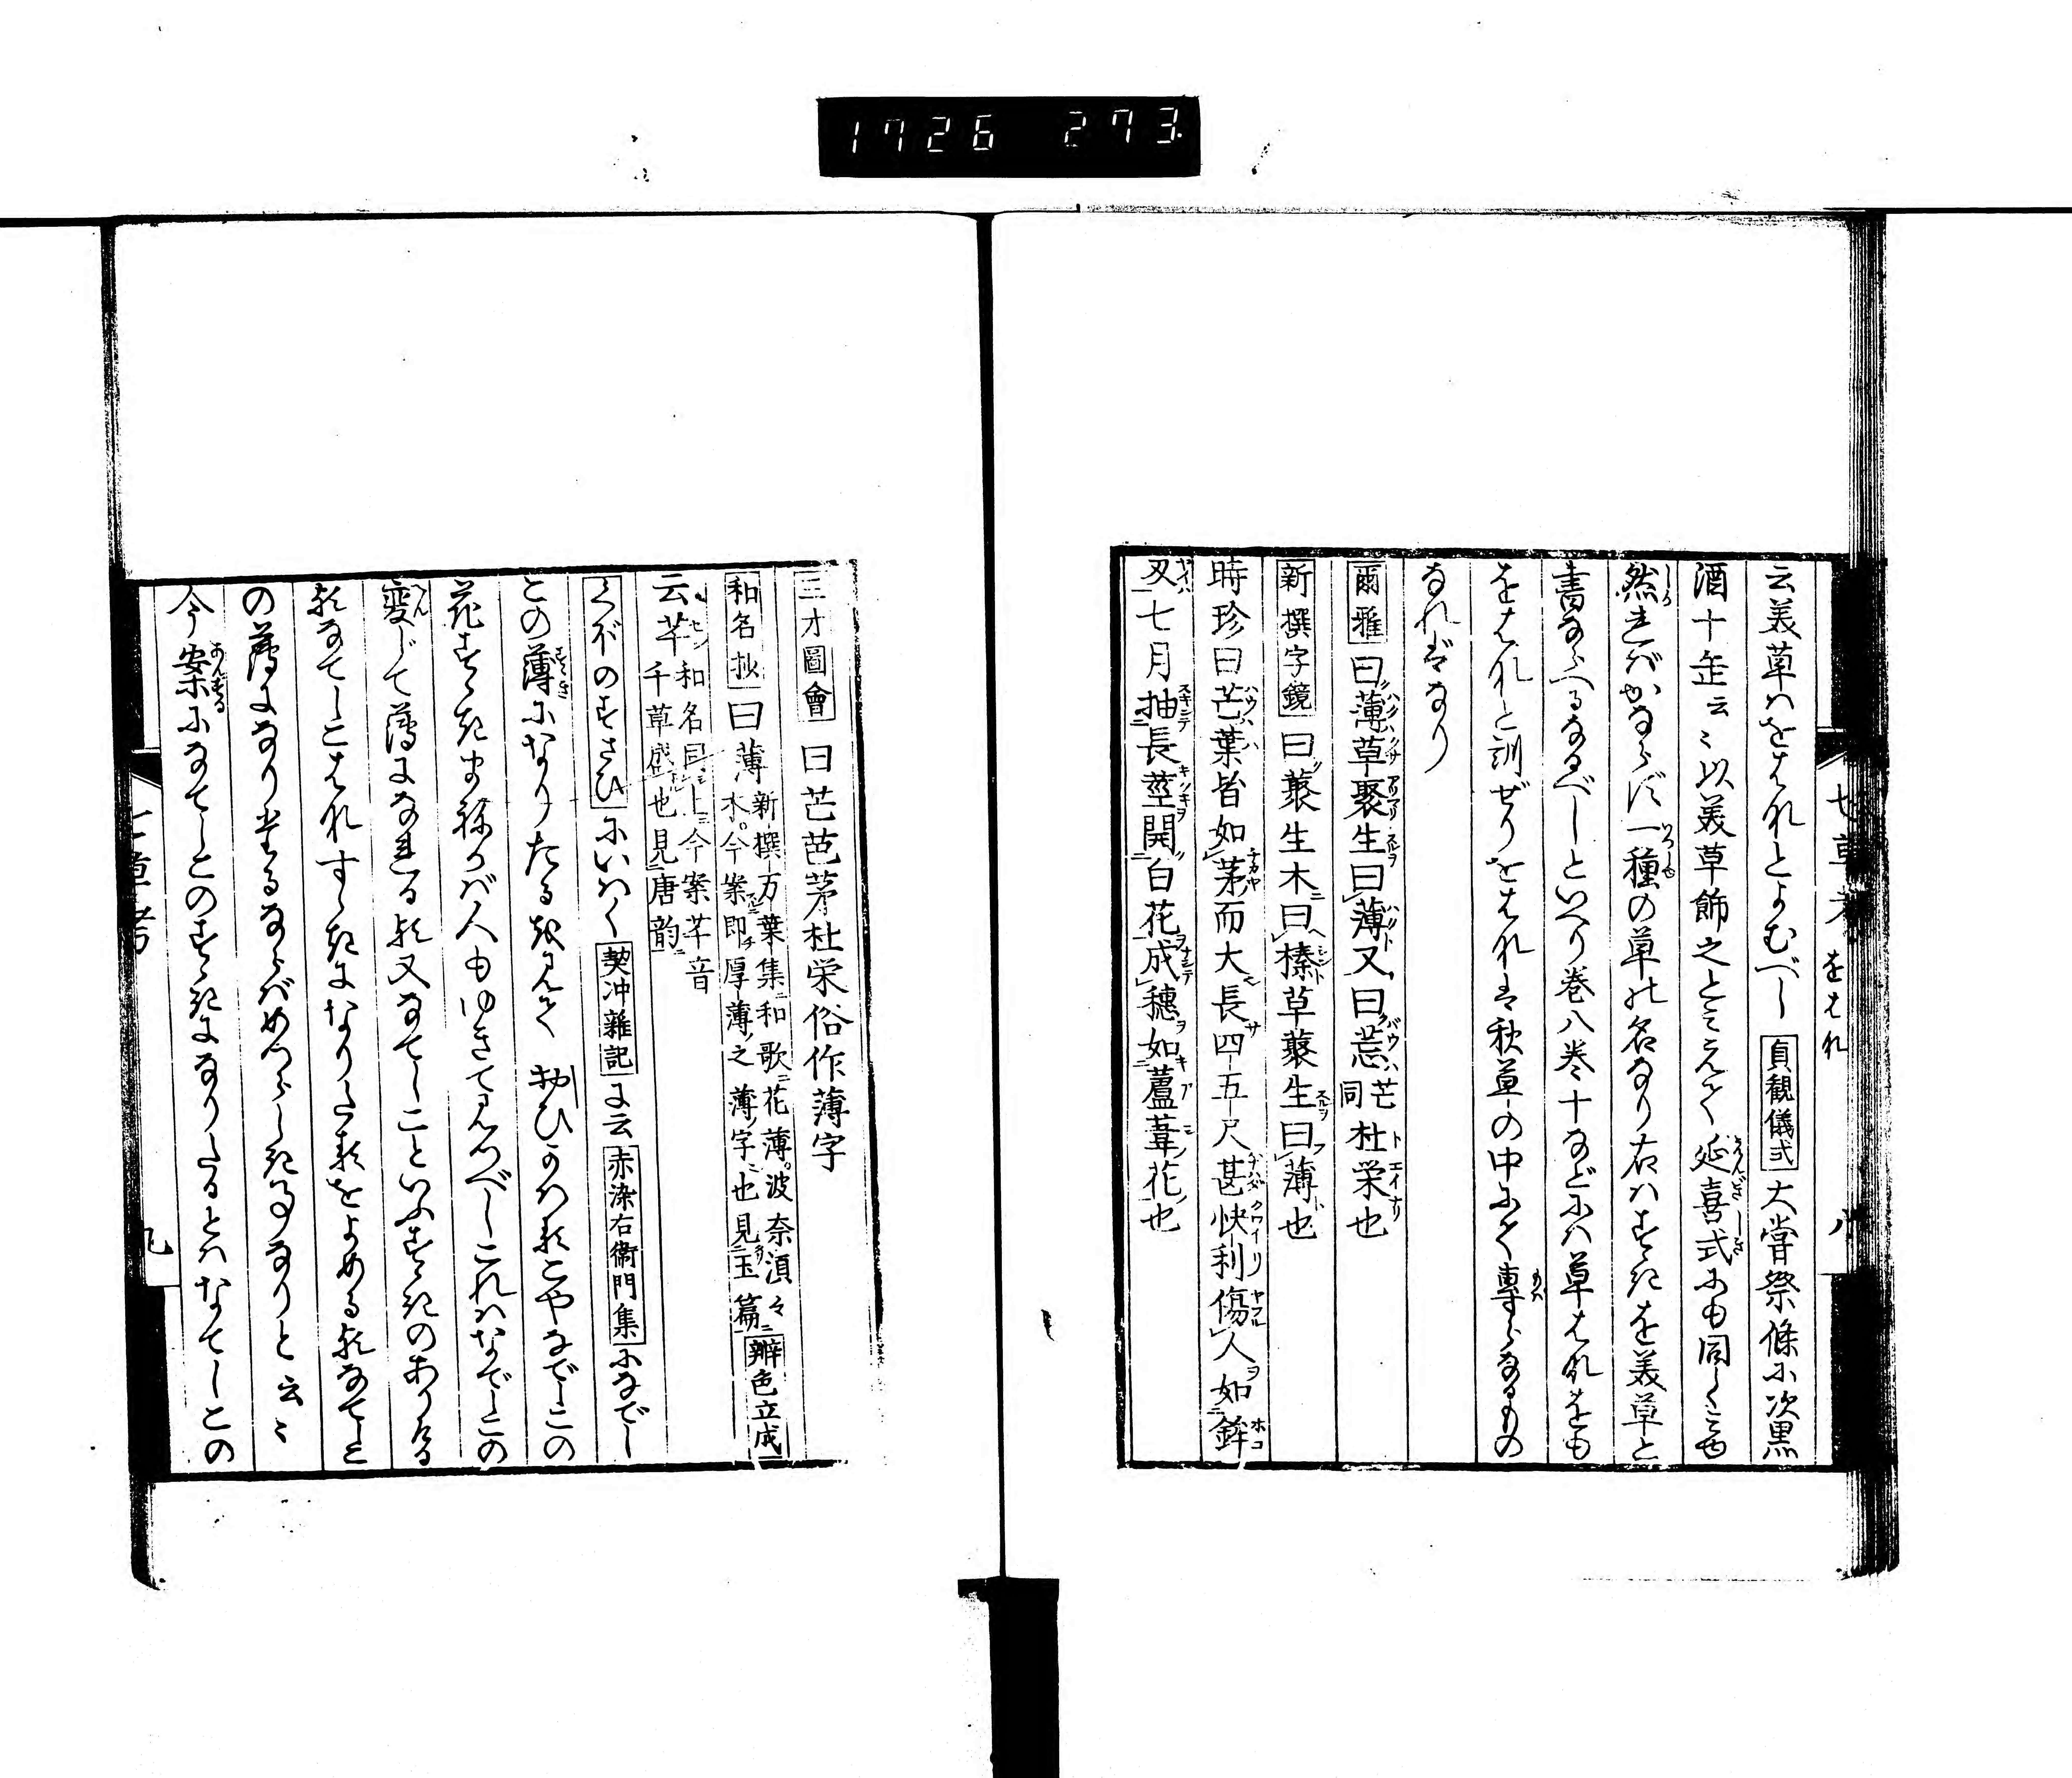 1726 273
七草考 をはれ 八
云美草ハをはれとよむべし貞観儀式大嘗祭條に次黒
酒十缶云々以美草飾之とみえて延喜式にも同しことや
然ればかならず一種の草の名なり右ハすゝきを美草と
書ならへるなるべしといへり巻八巻十などにハ草はれをも
をはれと訓ぜりをはれは秋草の中にて專らなるもの
なればなり
爾雅曰薄草聚生曰薄又曰𦬆芒同杜栄也
新撰字鏡曰藂生木曰榛草藂生曰薄也
時珍曰芒葉皆如茅而大長四五尺甚快利傷人如鉾
又七月抽長莖開白花成穗如蘆葦花也
三才圖會曰芒芭茅杜栄俗作薄字
和名抄曰薄新撰万葉集和歌花薄波奈湏々木今案即厚薄之薄字也見玉篇辨色立成
云芊和名同上今案芊音千草盛也見唐韵
くぼのすさひにいはく契冲雜記に云赤染右衛門集になでし
この薄になりたる
花すゝきまねかバ人もゆきてみるべしこれハなでしこの
變じて薄になれる歟又なてしこといふすゝきのありける
歟なてしこはれすゝきになりたる歟をよめる歟なてしこ
の薄になりたるならばめつらしき事なりと云々
今案になてしこのすゝきになりたるとハなてしこの
七草考 九